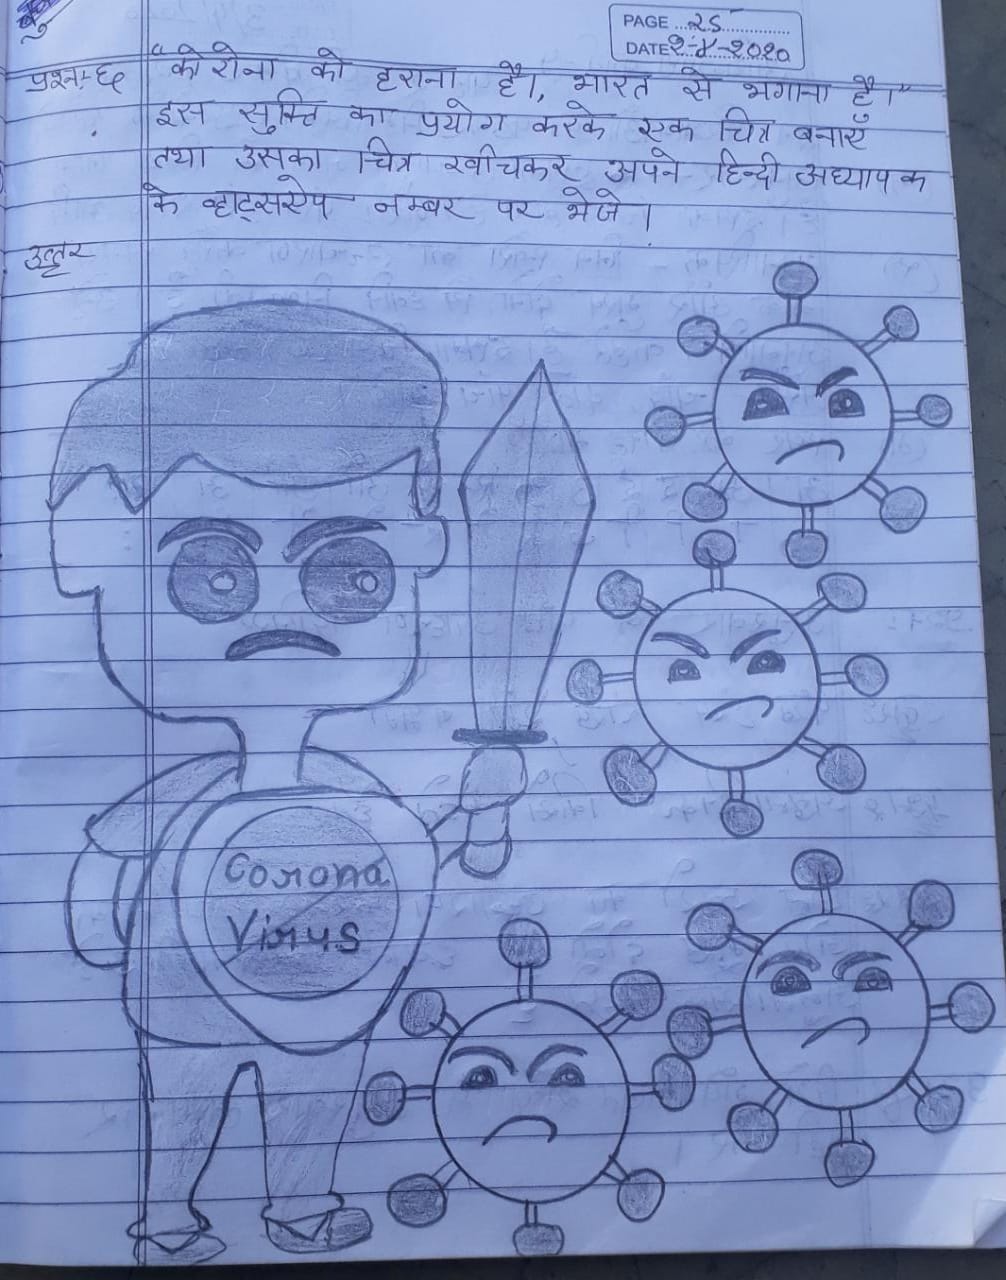 PAGE 25
DATE 2-४-2020
प्रश्न-६ “कोरोना को हराना है, भारत से भगाना है।”
इस सुक्ति का प्रयोग करके एक चित्र बनाएँ
तथा उसका चित्र खीचकर अपने हिन्दी अध्यापक
के व्हाट्सऐप नम्बर पर भेजे।
उत्तर
Corona
Virus